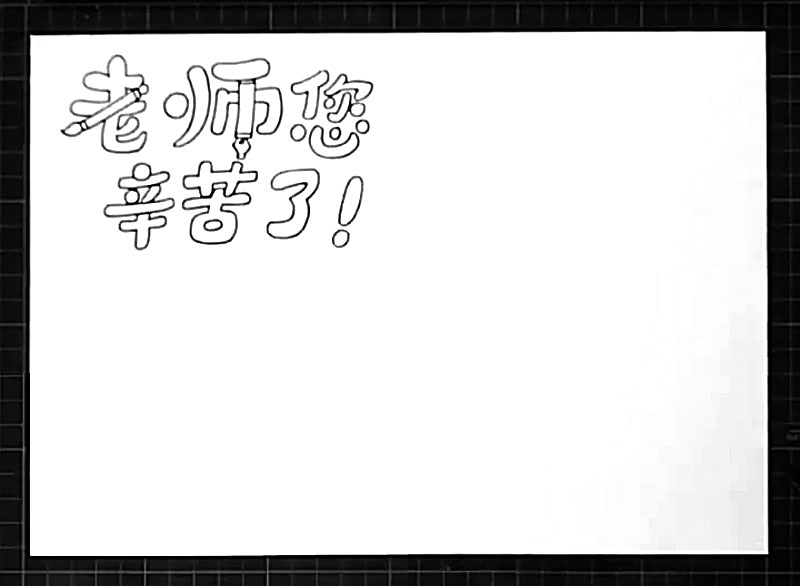 老师您
辛苦了！